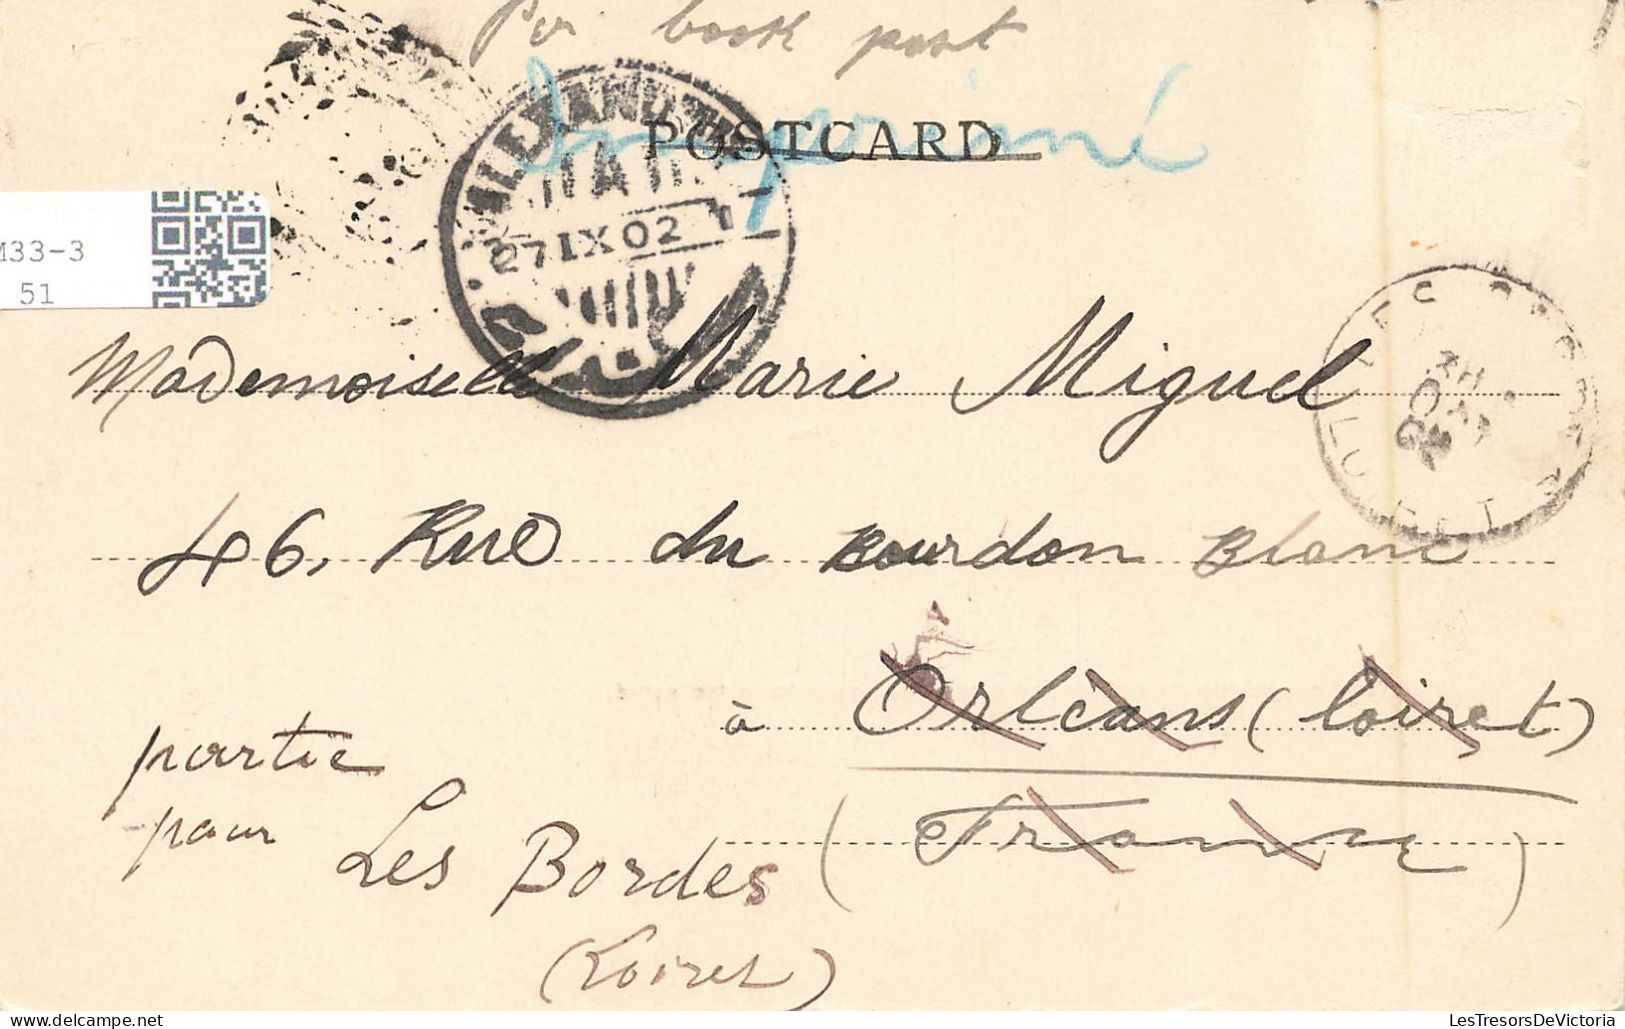 Per book post
imprimé
POSTCARD
ALEXANDRIE
A
27 IX 02
M33-3
51
Mademoiselle Marie Miguel
46, Rue du Bourdon Blanc
à Orléans (Loiret)
(France)
partie
pour Les Bordes
(Loiret)
LOIRET
LesTresorsDeVictoria